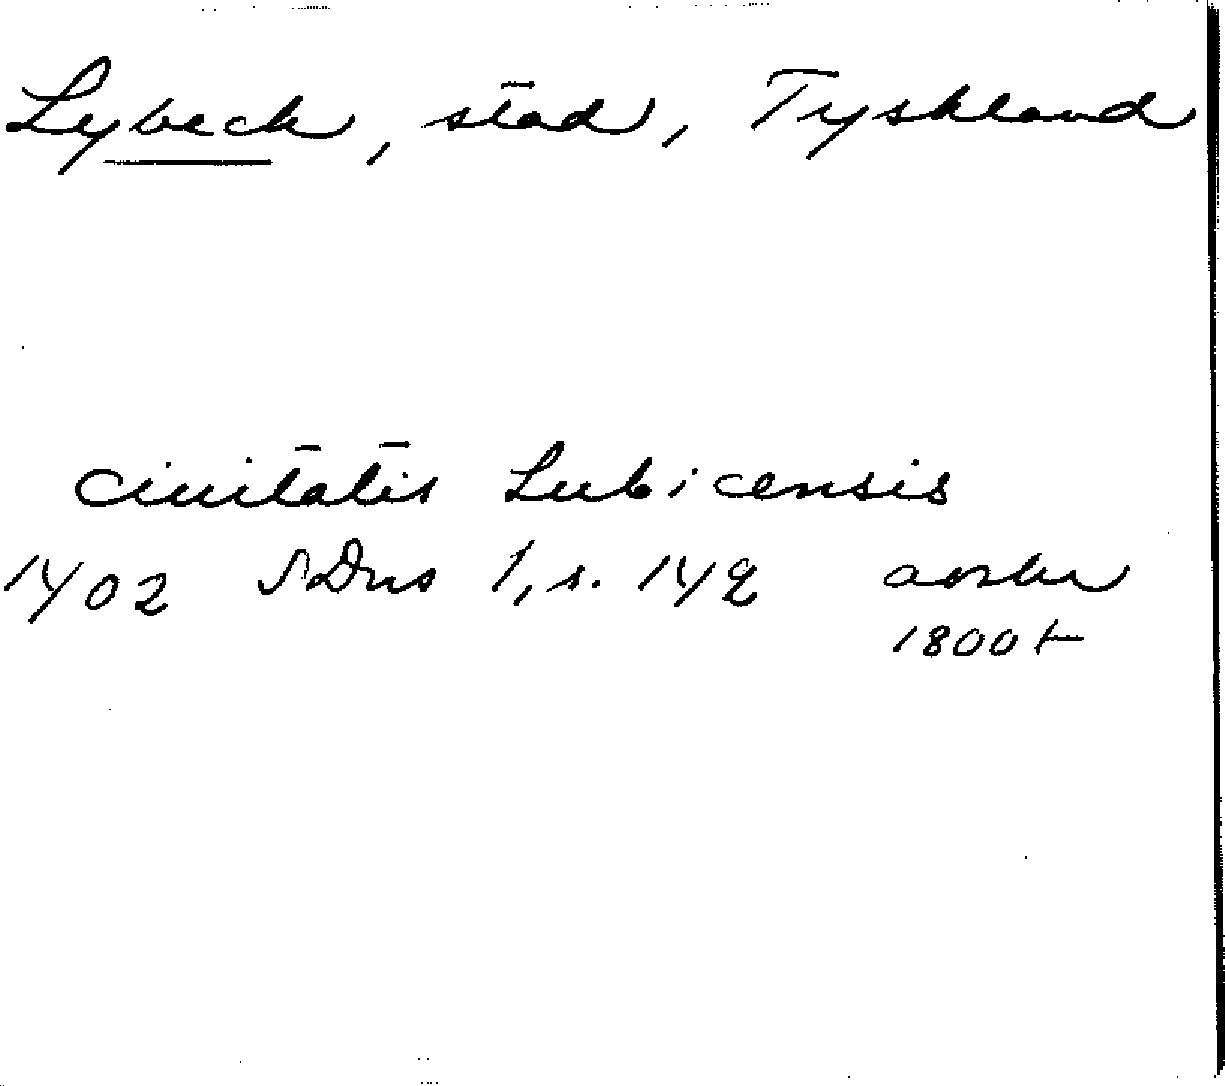 Lybeck, stad, Tyskland
civitatis Lubicensis
1402 SDns 1, s. 142 avskr
1800t